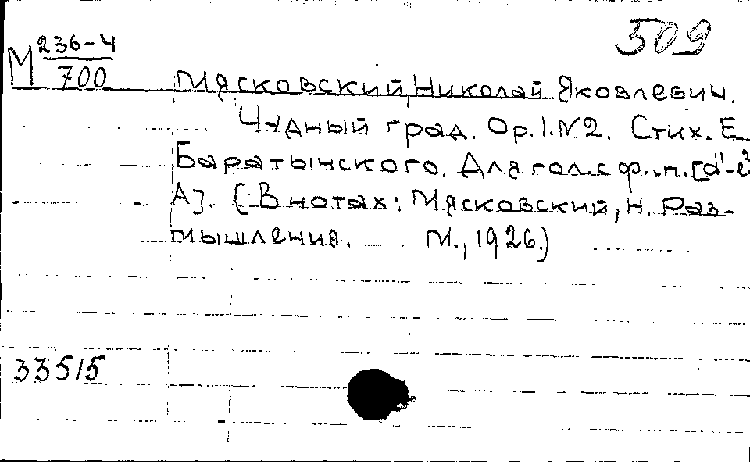 509
М 236-4
700
Мясковский, Николай Яковлевич.
Чудный град. Op.1.N2. Стих. Е.
Баратынского. Для гол. с ф.-п. [d'-e²
A]. (В нотах: Мясковский, Н. Раз-
мышления. М., 1926.)
33515